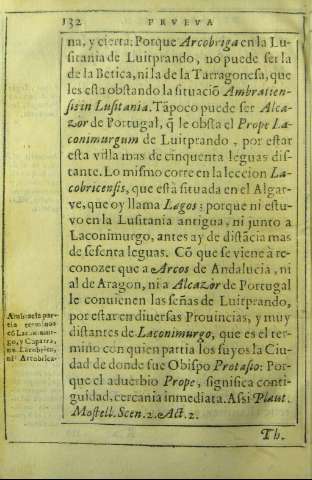 132 PRVEVA
na, y cierta: Porque Arcobriga en la Lu-
sitania de Luitprando, no puede ser la
de la Betica, ni la de la Tarragonesa, que
les esta obstando la situaciō Ambratien-
sis in Lusitania. Tāpoco puede ser Alca-
zor de Portugal, q̃ le obsta el Prope La-
conimurgum de Luitprando, por estar
esta villa mas de cinquenta leguas dis-
tante. Lo mismo corre en la leccion La-
cobricensis, que està situada en el Algar-
ve, que oy llama Lagos: porque ni estu-
vo en la Lusitania antigua, ni junto a
Laconimurgo, antes ay de distācia mas
de sesenta leguas. Cō que se viene à re-
conozer que a Arcos de Andalucia, ni
al de Aragon, ni a Alcazor de Portugal
le convienen las señas de Luitprando,
por estar en diuersas Prouincias, y muy
distantes de Laconimurgo, que es el ter-
mino con quien partia los suyos la Ciu-
dad de donde fue Obispo Protasio: Por-
que el aduerbio Prope, significa conti-
guidad, cercania inmediata. Assi Plaut.
Mostell. Scen. 2. Act. 2.
Th.
Ambracia par-
tia terminos
cō Laconimur-
go, y Caparra,
no Lacobriga,
ni Arcobrica.